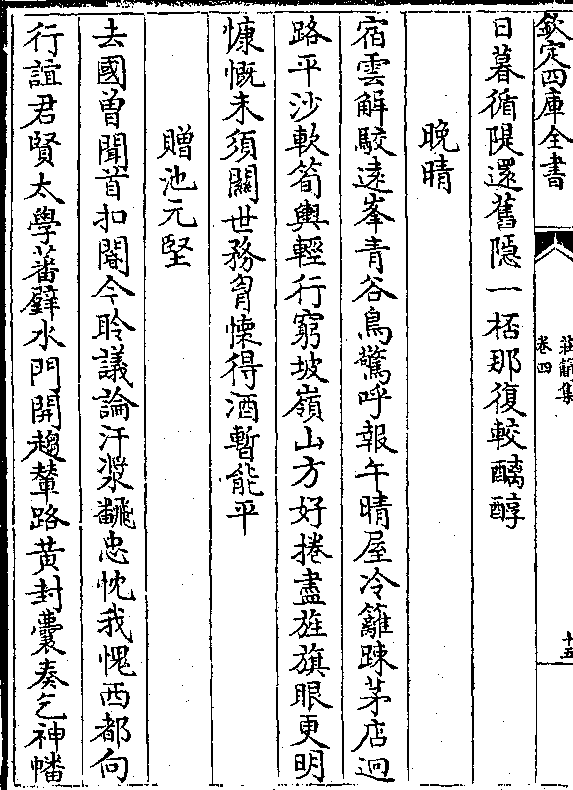 欽定四庫全書
莊簡集
卷四
十五
日暮循隄還舊隱一桮那復較醨醇
晚晴
宿雲解駮逺峯青谷鳥驚呼報午晴屋冷籬踈茅店迥
路平沙軟筍輿輕行窮坡嶺山方好捲盡旌旗眼更明
慷慨未須關世務胷懐得酒暫能平
贈池元堅
去國曽聞首扣閽今聆議論汗漿飜忠忱我愧西都向
行誼君賢太學蕃璧水門開趨輦路黄封囊奏乞神幡